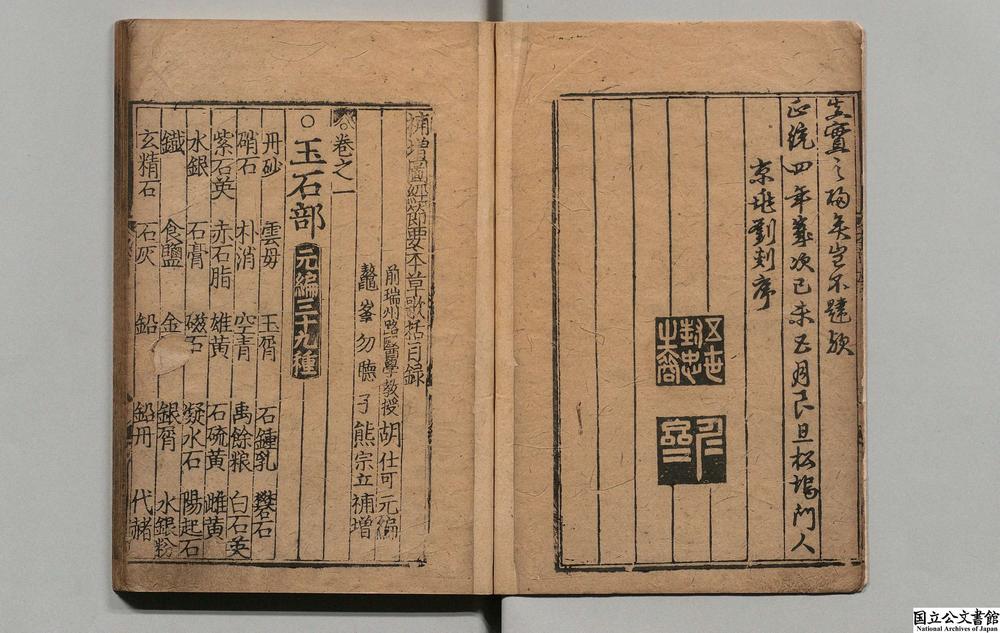 正統四年歲次己未五月良旦松塢門人
京兆劉剡序
補增圖經節要本草歌括目錄
前瑞州路醫學教授胡仕可元編
鼇峯勿聽子熊宗立補增
卷之一
○玉石部 元編三十九種
丹砂 雲母 玉屑 石鍾乳 礬石
硝石 朴消 空青 禹餘粮 白石英
紫石英 赤石脂 雄黃 石硫黃 雌黃
水銀 石膏 磁石 凝水石 陽起石
鐵 食鹽 金 銀屑 水銀粉
玄精石 石灰 鉛 鉛丹 代赭
国立公文書館
National Archives of Japan